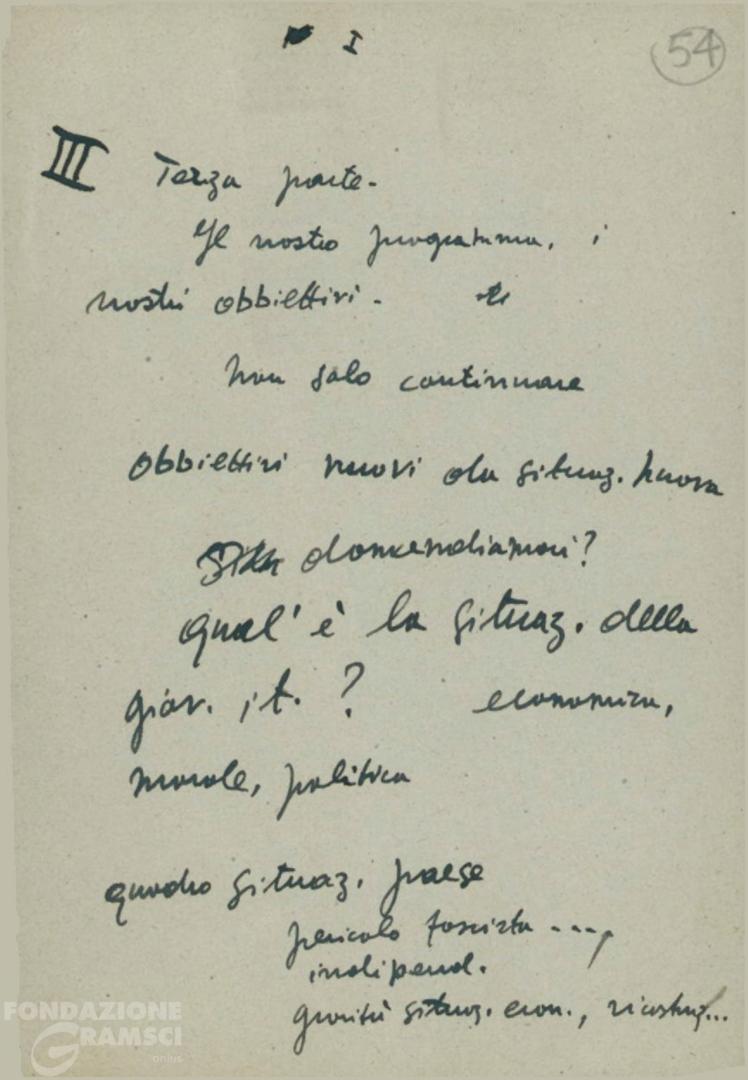 I
54
III Terza parte.
Il nostro programma, i
nostri obbiettivi.
Non solo continuare
Obbiettivi nuovi da situaz. nuova
domandiamoci?
Qual'è la situaz. della
giov. it. ? economica,
morale, politica
quadro situaz. paese
pericolo fascista ....,
indipend.
gravità situaz. econ., ricostruz...
FONDAZIONE
GRAMSCI
onlus